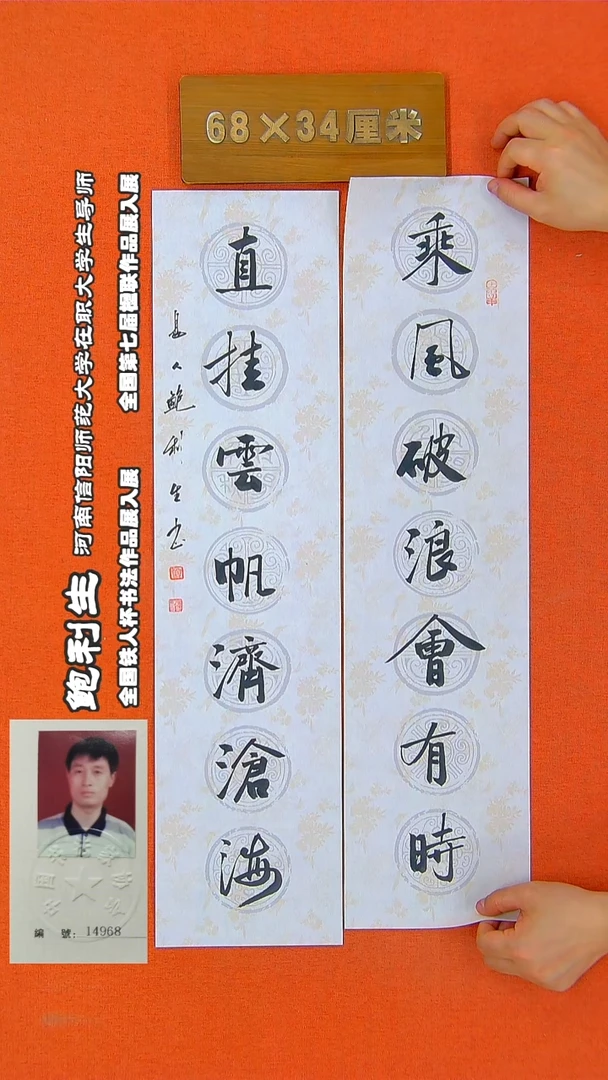 68×34厘米
乘風破浪會有時
直挂雲帆濟滄海
鮑利生书
鲍利生 河南信阳师范大学在职大学生导师
全国铁人杯书法作品展入展 全国第七届楹联作品展入展
編 號: 14968